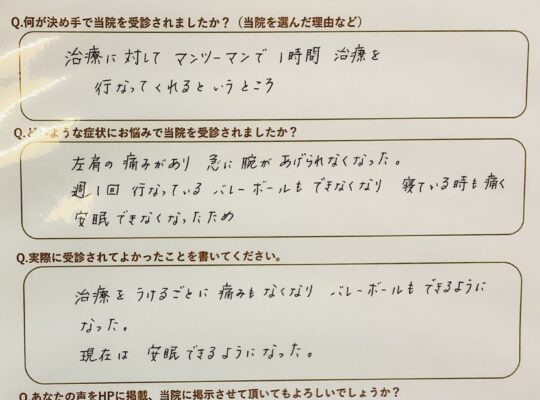 Q.何が決め手で当院を受診されましたか？（当院を選んだ理由など）
治療に対して マンツーマンで 1時間 治療を
行なってくれるというところ
Q.どのような症状にお悩みで当院を受診されましたか？
左肩の痛みがあり 急に腕があげられなくなった。
週1回 行なっている バレーボールもできなくなり 寝ている時も痛く
安眠できなくなったため
Q.実際に受診されてよかったことを書いてください。
治療をうけるごとに痛みもなくなり バレーボールもできるように
なった。
現在は 安眠できるようになった。
Q.あなたの声をHPに掲載、当院に掲示させて頂いてもよろしいでしょうか？